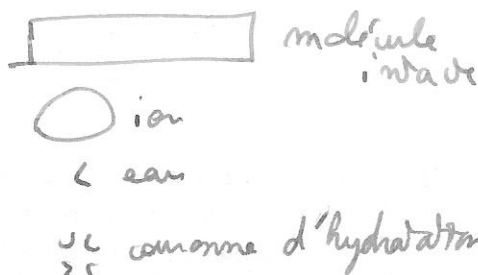 molécule
intacte
ion
eau
couronne d'hydratation